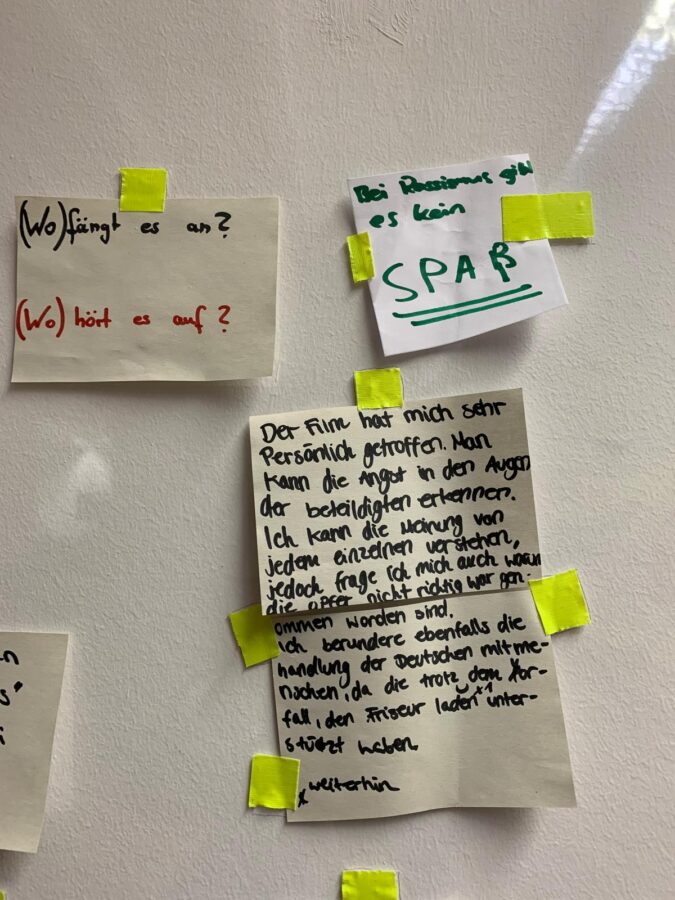 (Wo) fängt es an?
(Wo) hört es auf?
Bei Rassismus gibt
es kein
SPAß
Der Film hat mich sehr
Persönlich getroffen. Man
kann die Angst in den Augen
der beteildigten erkennen.
Ich kann die Meinung von
jedem einzelnen verstehen,
jedoch frage ich mich auch warum
die opfer nicht richtig war gen-
ommen worden sind.
ich berundere ebenfalls die
handlung der Deutschen mitme-
nschen, da die trotz dem Vor-
fall, den Friseur laden *¹ unter-
stützt haben
* weiterhin